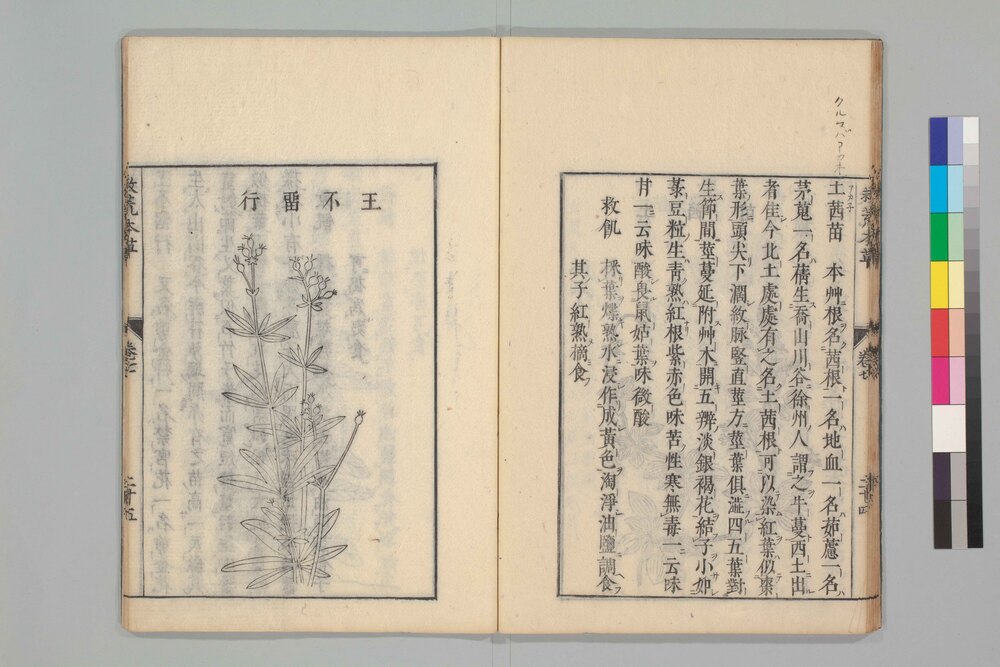 土茜苗　本艸根名茜根一名地血一名茹藘一名
茅蒐一名蒨生喬山川谷徐州人謂之牛蔓西土出
者佳今北土處處有之名土茜根可以染紅葉似棗
葉形頭尖下濶紋脉竪直莖方莖葉俱澁四五葉對
生節間莖蔓延附艸木開五瓣淡銀褐花結子小如
菉豆粒生青熟紅根紫赤色味苦性寒無毒一云味
甘一云味酸良鼠姑葉味微酸
救飢　採葉煠熟水浸作成黃色淘淨油鹽調食
其子紅熟摘食
王不畱行
救荒本草